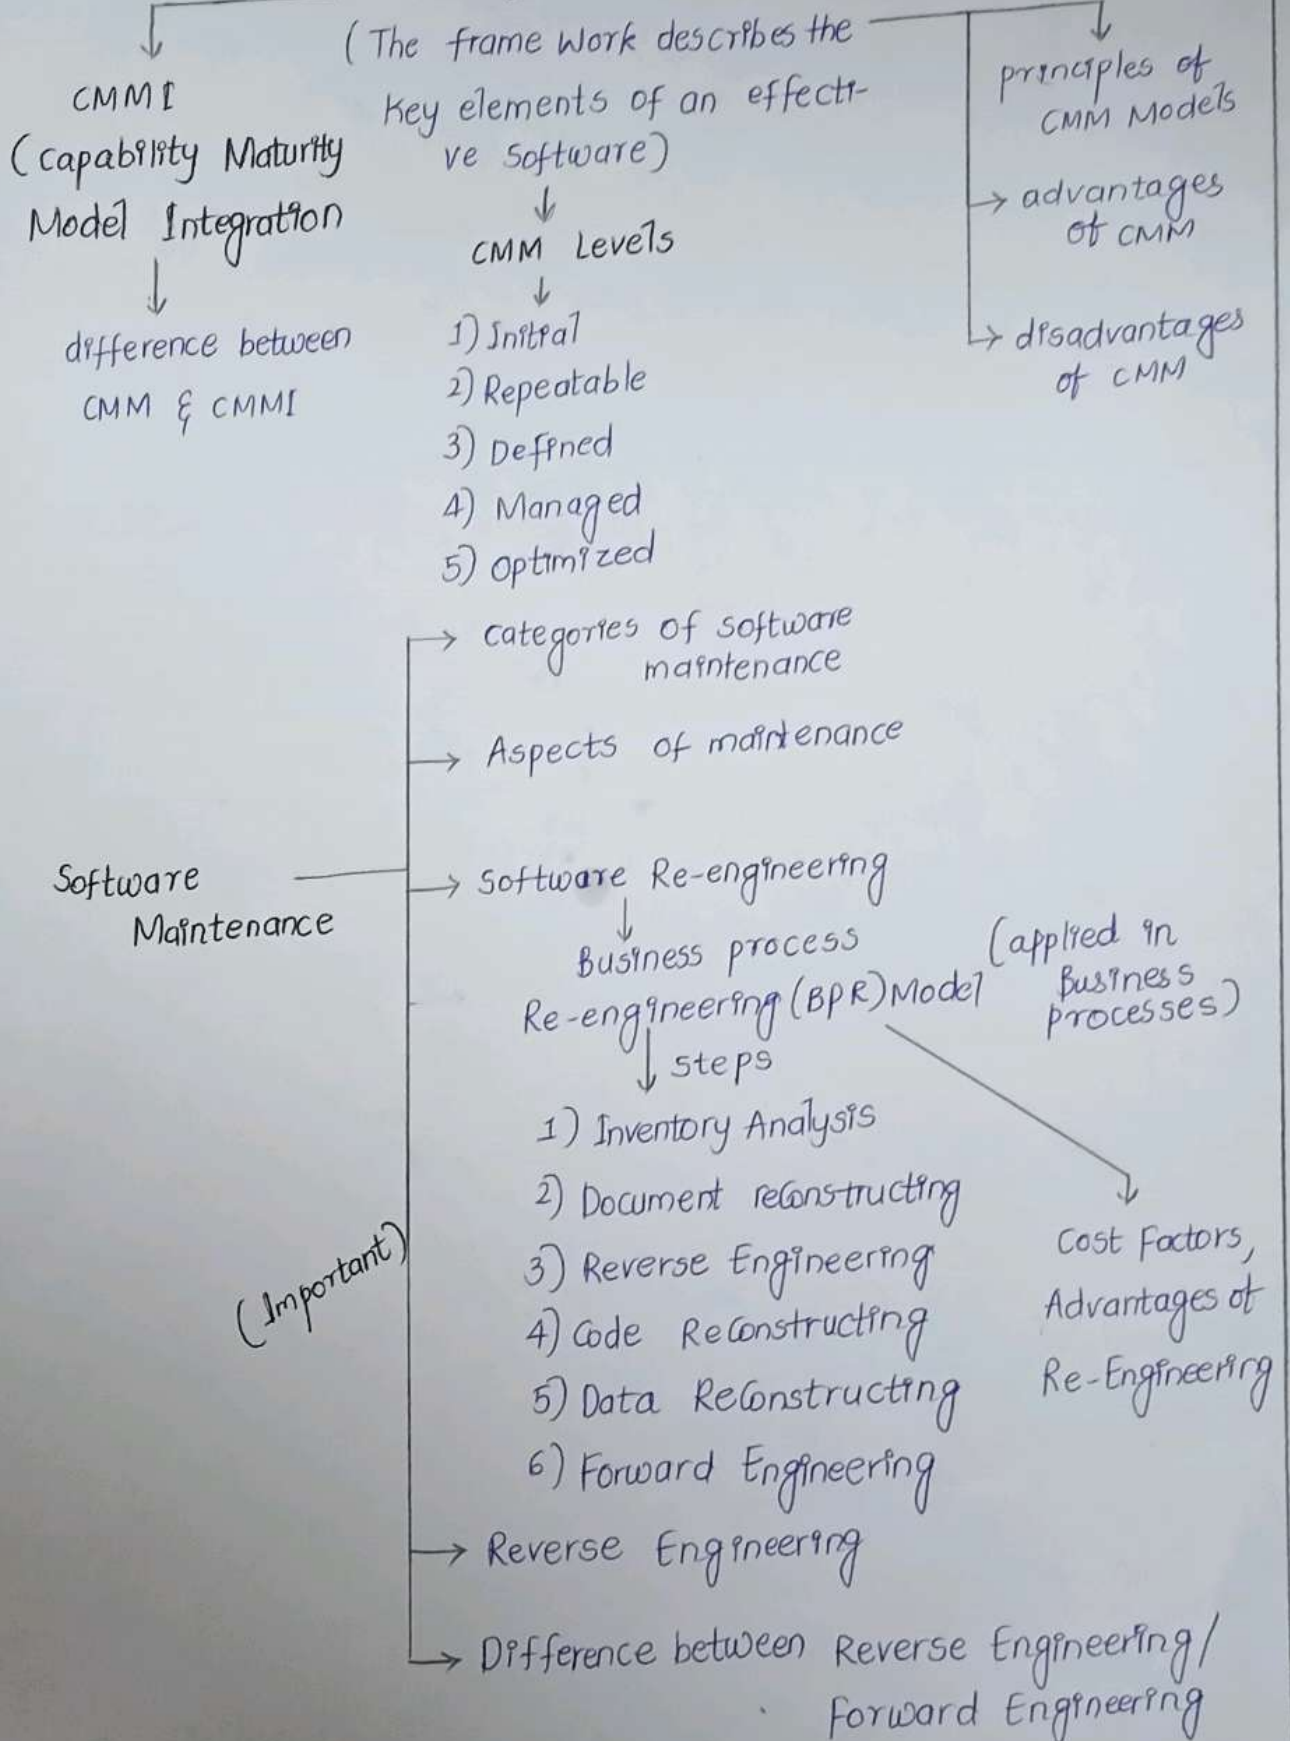 CMMI
(Capability Maturity
Model Integration
difference between
CMM & CMMI
(The frame work describes the
key elements of an effecti-
ve software)
CMM Levels
1) Initial
2) Repeatable
3) Defined
4) Managed
5) Optimized
principles of
CMM Models
advantages
of CMM
disadvantages
of CMM
Software
Maintenance
(Important)
categories of software
maintenance
Aspects of maintenance
Software Re-engineering
Business process
Re-engineering (BPR) Model
(applied in
Business
processes)
steps
1) Inventory Analysis
2) Document reconstructing
3) Reverse Engineering
4) Code Reconstructing
5) Data Reconstructing
6) Forward Engineering
Cost Factors,
Advantages of
Re-Engineering
Reverse Engineering
Difference between Reverse Engineering/
Forward Engineering